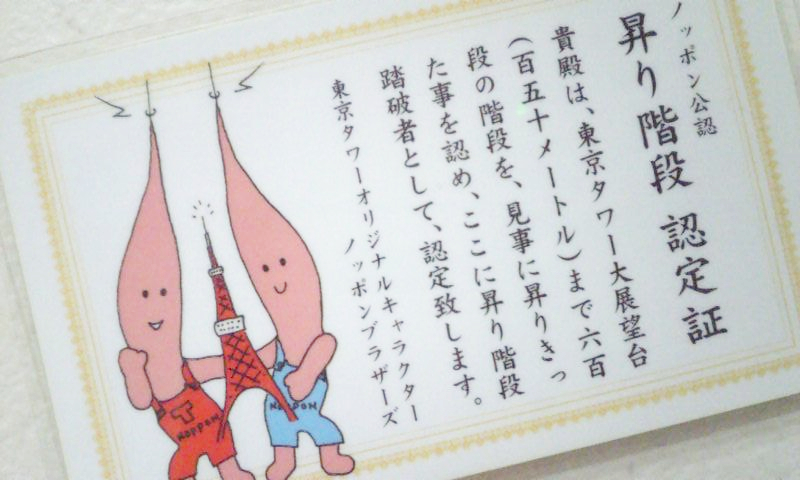 ノッポン公認
昇り階段 認定証
貴殿は、東京タワー大展望台
(百五十メートル)まで六百
段の階段を、見事に昇りきっ
た事を認め、ここに昇り階段
踏破者として、認定致します。
東京タワーオリジナルキャラクター
ノッポンブラザーズ
T
NOPPON
NOPPON